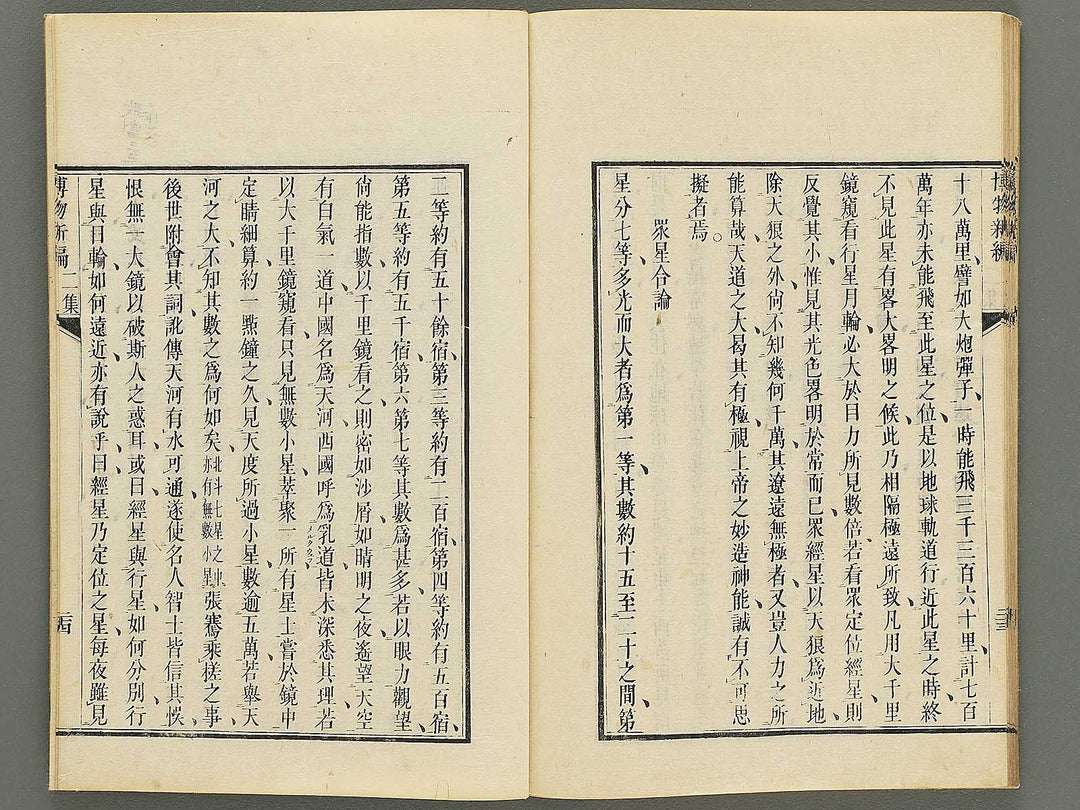 十八萬里、譬如大炮彈子、一時能飛三千三百六十里、計七百
萬年亦未能飛至此星之位、是以地球軌道行近此星之時、終
不見此星有畧大畧明之候、此乃相隔極遠所致、凡用大千里
鏡窺看行星月輪、必大於目力所見數倍、若看眾定位經星、則
反覺其小、惟見其光色畧明於常而已、眾經星以天狼爲近地、
除天狼之外、尙不知幾何千萬、其遼遠無極者、又豈人力之所
能算哉、天道之大、曷其有極、視上帝之妙造神能、誠有不可思
擬者焉。
眾星合論
星分七等、多光而大者爲第一等、其數約十五至二十之間、第
二等約有五十餘宿、第三等約有二百宿、第四等約有五百宿、
第五等約有五千宿、第六第七等其數爲甚多、若以眼力觀望、
尙能指數、以千里鏡看之、則密如沙屑、如晴明之夜、遙望天空
有白氣一道、中國名爲天河、西國呼爲乳道、皆未深悉其理、若
メルクウェフ
以大千里鏡窺看、只見無數小星萃聚一所、有星士嘗於鏡中
定睛細算、約一點鐘之久、見天度所過小星、數逾五萬、若舉天
河之大、不知其數之爲何如矣、北斗七星之中亦有無數小星張騫乘槎之事、
後世附會其詞、訛傳天河有水可通、遂使名人智士皆信其悞、
恨無一大鏡以破斯人之惑耳、或曰經星與行星如何分別、行
星與日輪如何遠近、亦有說乎、曰經星乃定位之星、每夜雖見
博物新編二集